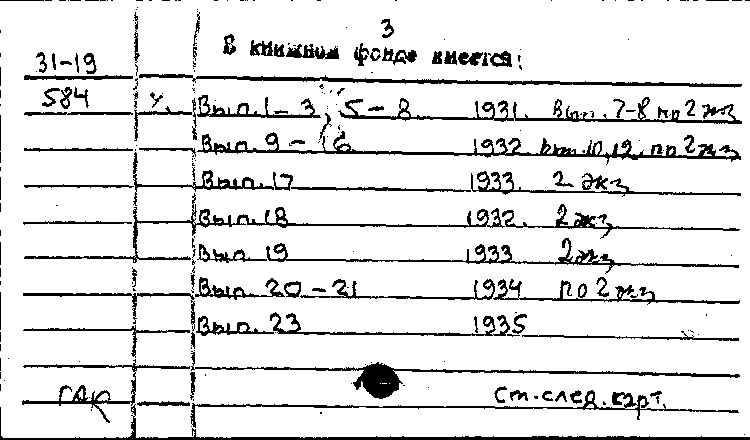 3
В книжном фонде имеется:
31-19
584 У. Вып. 1-3, 5-8 1931. Вып. 7-8 по 2 экз
Вып. 9-16 1932 Вып. 10, 12. по 2 экз
Вып. 17 1933. 2 экз
Вып. 18 1932. 2 экз
Вып. 19 1933 2 экз
Вып. 20-21 1934 по 2 экз
Вып. 23 1935
гак ст. след. карт.